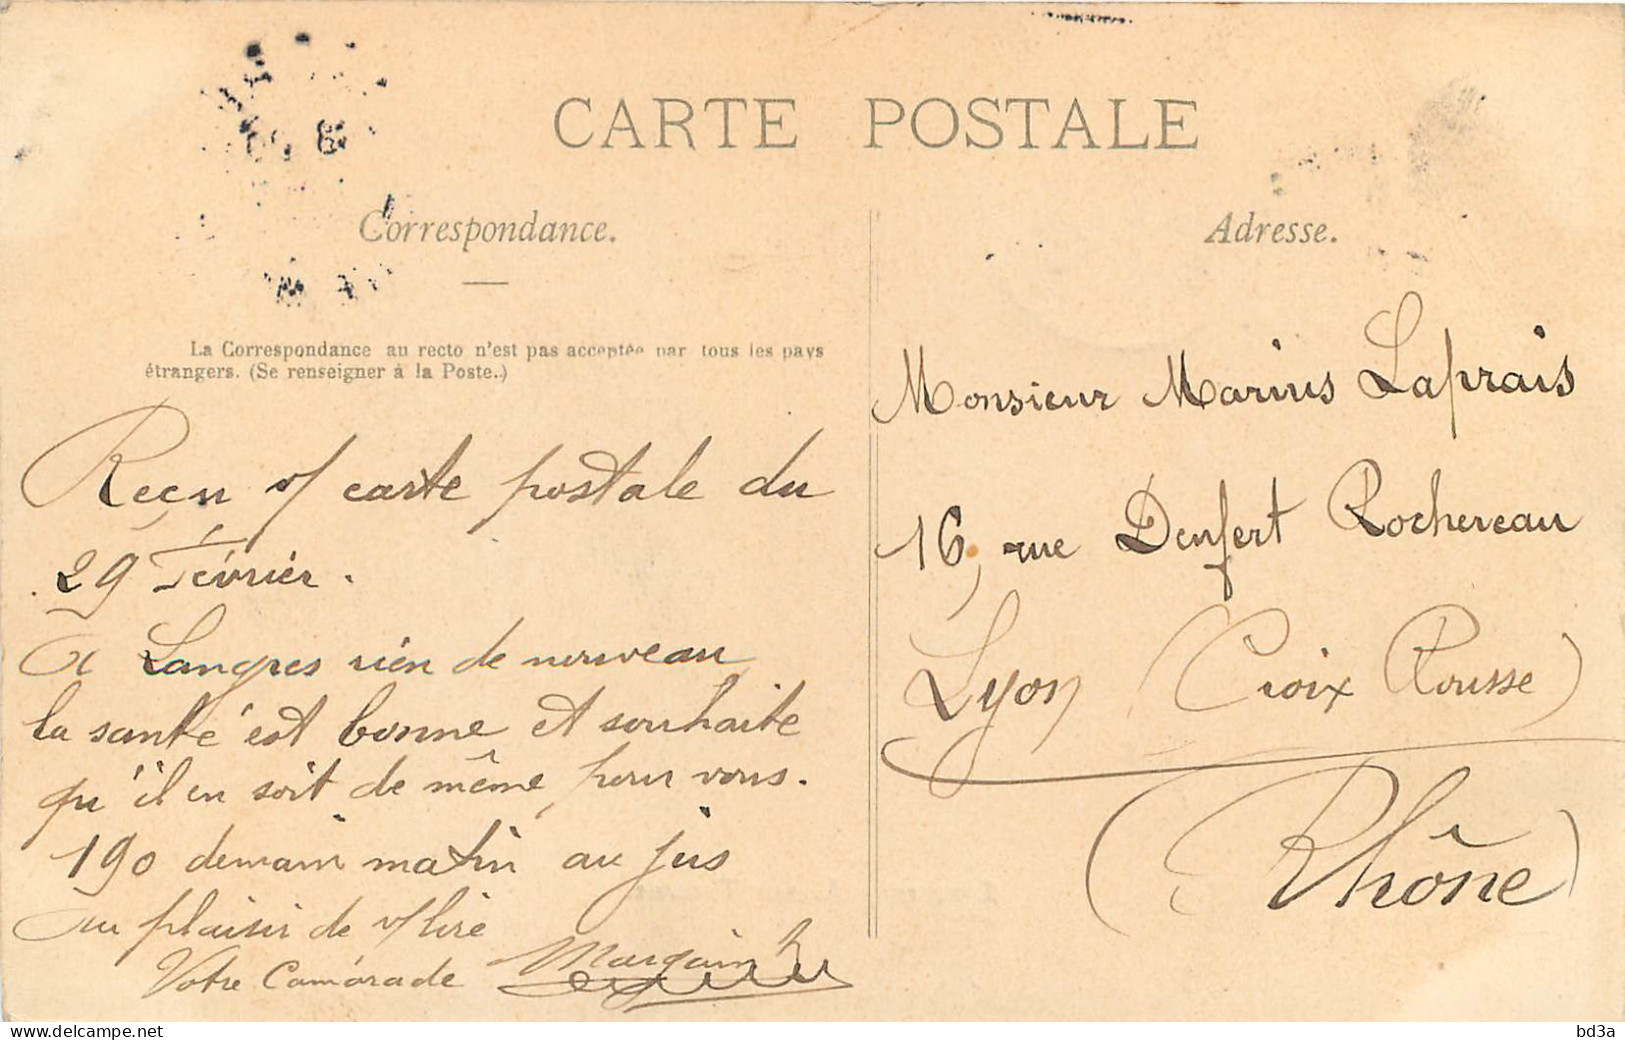 CARTE POSTALE
Correspondance.
Adresse.
La Correspondance au recto n'est pas acceptée par tous les pays
étrangers. (Se renseigner à la Poste.)
Reçu v/ carte postale du
29 Février.
A Langres rien de nouveau
la santé est bonne et souhaite
qu'il en soit de même pour vous.
190 demain matin au jus
Au plaisir de v/ lire
Votre Camarade Margain
Monsieur Marius Laprais
16, rue Denfert Rochereau
Lyon (Croix Rousse)
(Rhône)
delcampe.net
bd3a